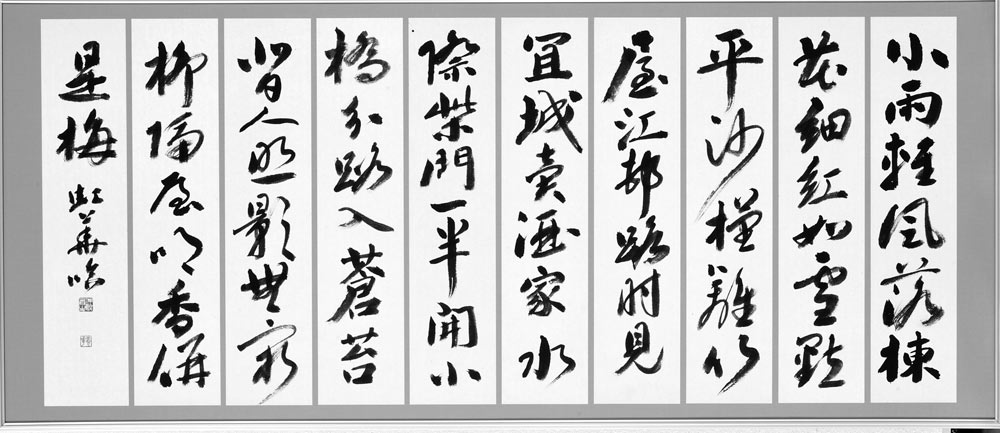 小雨輕風落楝
花細紅如雪點
平沙槿籬竹
屋江邨路时見
宜城賣酒家水
際柴門一半開小
橋分路入蒼苔
背人照影無窮
柳隔屋吹香併
是梅